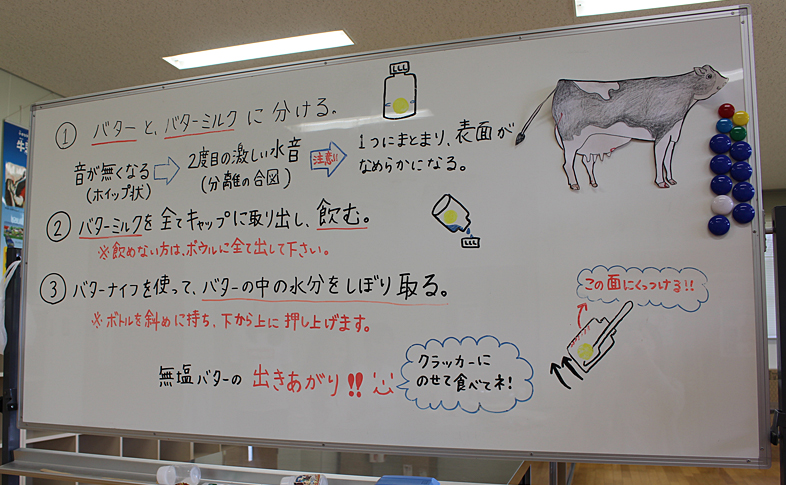 ① バターと、バターミルクに分ける。
音が無くなる ⇨ 2度目の激しい水音 注意!! 1つにまとまり、表面が
(ホイップ状) (分離の合図) なめらかになる。
② バターミルクを全てキャップに取り出し、飲む。
※飲めない方は、ボウルに全て出して下さい。
③ バターナイフを使って、バターの中の水分をしぼり取る。
※ボトルを斜めに持ち、下から上に押し上げます。
この面にくっつける!!
無塩バターの 出きあがり!!
クラッカーに
のせて食べてネ!